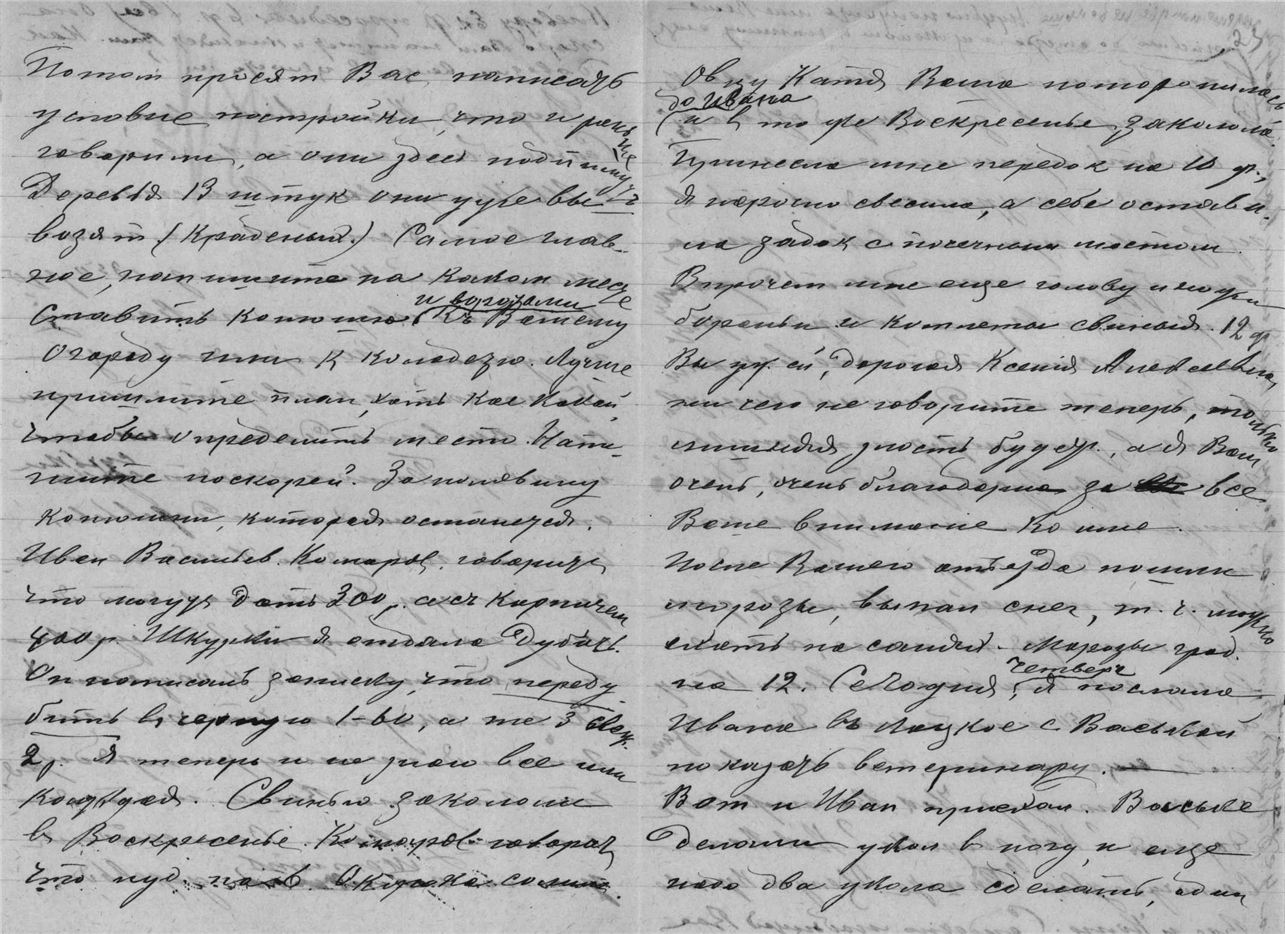 Потом просят Вас, написать
условие постройки, что и рань
ше
говорили, а они здесь подпишут
Деревья 13 штук они уже вы-
возят (краденый.) Самое глав-
ное, напишите на каком месте
и воротами
ставить конюшню (къ Вашему
огороду или к колодезю. Лучше
пришлите план, хоть кое какой,
чтобы определить место. Напи-
шите поскорей. За половину
конюшни, которая останется,
Иван Васильев. Комаров. говорит,
что могут дать 300 р. а съ кирпичем
400 р. Шкурки я отдала дубить.
Он написалъ записку, что переду
бить в черную 1-60, а те 3
2 р. Я теперь и не знаю все или
каждая. Свинью закололи
в Воскресенье. Комаров говорят,
что пуд. Окорока солила.
23
Овцу Катя Ваша поторопилась
до Ивана
(и в то же Воскресенье, заколола.
Принесла мне передок на 10 ф.,
я нарочно свесила, а себе остави-
ла задок с почечным мостом.
Впрочем мне еще голову и ножки
бараньи и котлеты свиныя. 12 ф.
Вы уж ей, дорогая Ксения Алексеевна,
ни чего не говорите теперь, только
лишняя злость будет, а я Вам
очень, очень благодарна за все
Ваше внимание ко мне.
После Вашего отъезда пошли
морозы, выпал снег, т. ч. можно
ехать на санях. Морозы град.
четверг
на 12. Сегодня, я послала
Ивана въ с Васькой
показать ветеринару.
Вот и Иван приехал. Ваське
делали укол в ногу, и еще
надо два укола сделать, один